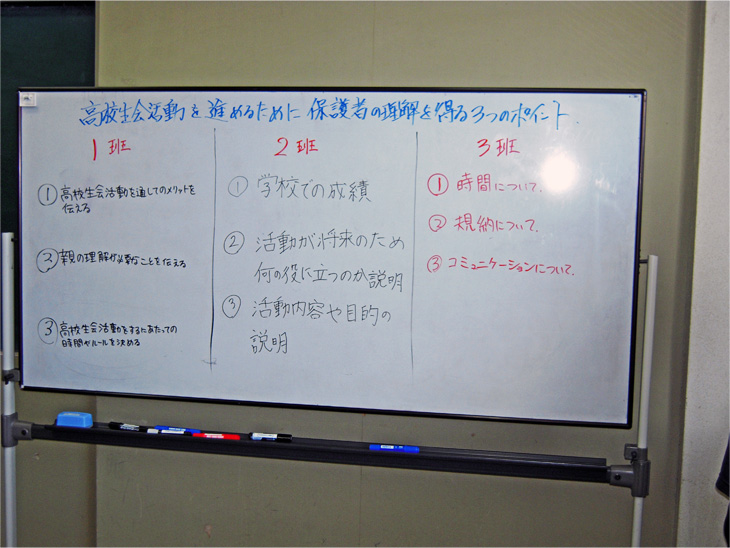 高校生会活動を進めるために保護者の理解を得る3つのポイント.
1班
① 高校生会活動を通してのメリットを
伝える
② 親の理解が必要なことを伝える
③ 高校生会活動をするにあたっての
時間やルールを決める
2班
① 学校での成績
② 活動が将来のため
何の役に立つのか説明
③ 活動内容や目的の
説明
3班
① 時間について.
② 規納について.
③ コミュニケーションについて.